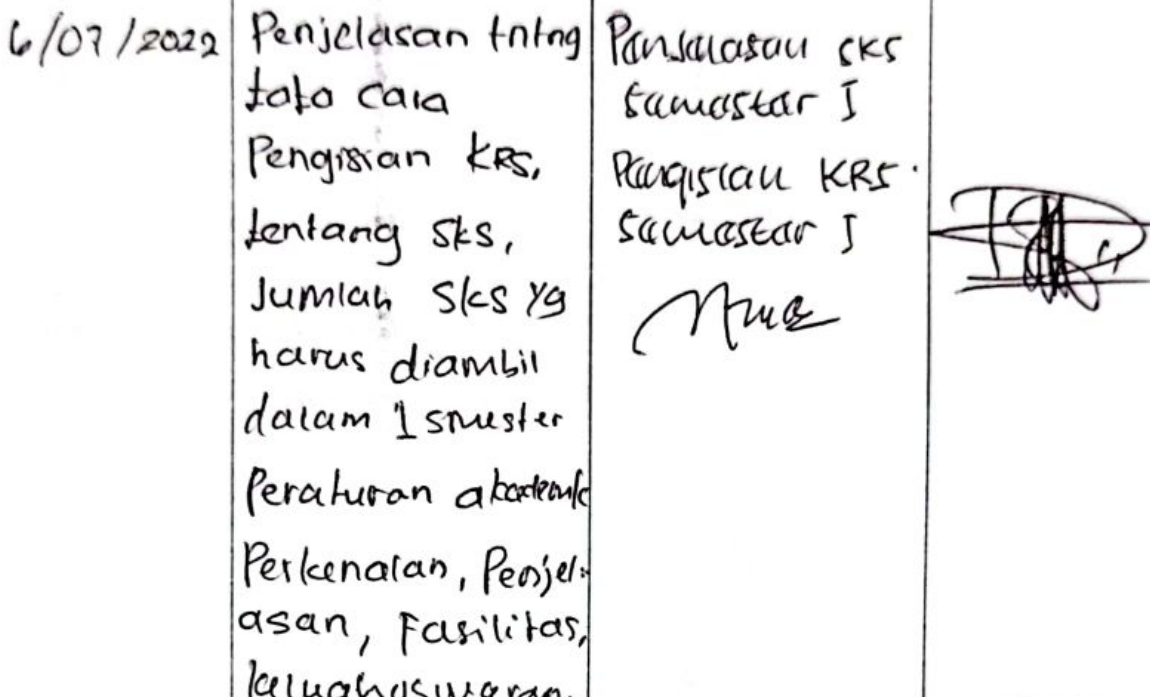 6/07/2022
Penjelasan tntng
tata cara
Pengisian KRS,
tentang SKS,
Jumlah SKS yg
harus diambil
dalam 1 smester
Peraturan akademik
Perkenalan, Penjel-
asan, Fasilitas,
Penjelasan SKS
Semester I
Pengisian KRS.
Semester I